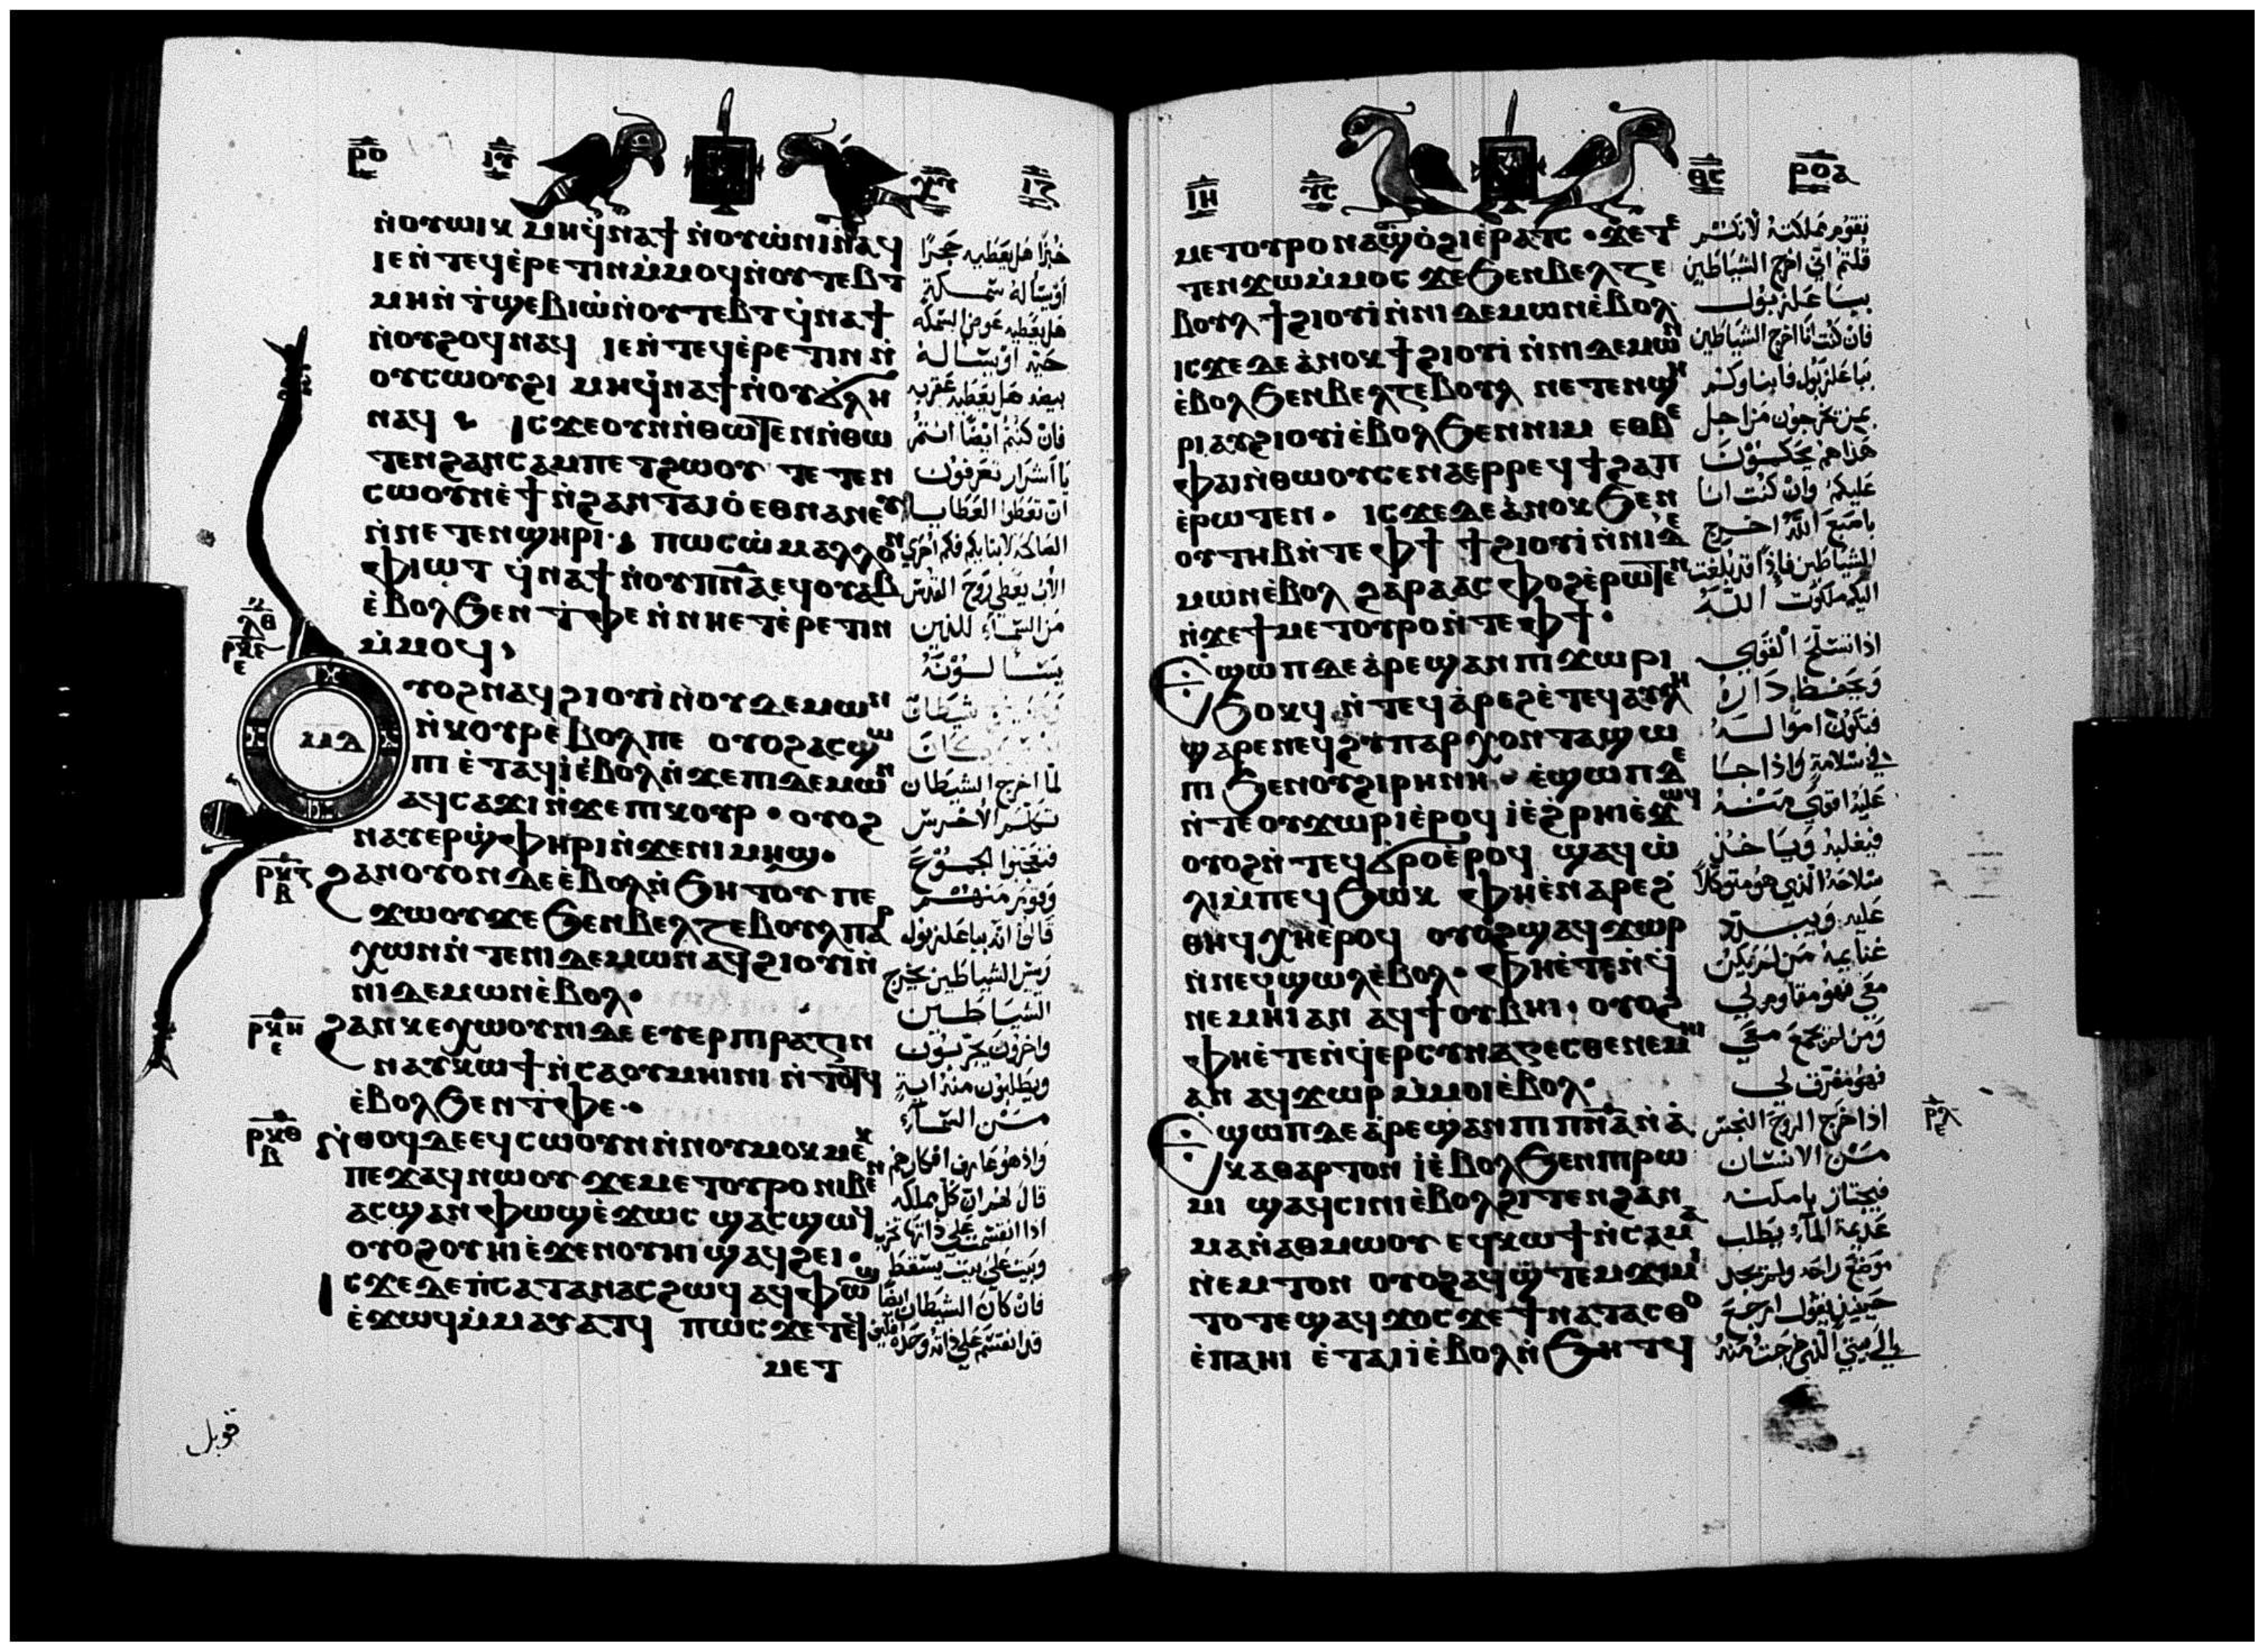 ⲣⲟ
ⲓⲋ
ⲭⲥ
ⲓⲍ
ⲛ̀ⲟⲩⲱⲓⲕ ⲙⲏϥ̀ⲛⲁϯ ⲛ̀ⲟⲩⲱ̀ⲛⲓ ⲛⲁϥ
ⲓⲉ ⲛ̀ⲧⲉϥⲉ̀ⲣⲉⲧⲓⲛ ⲙ̀ⲙⲟϥ ⲛ̀ⲟⲩⲧⲉⲃⲧ
ⲙⲏ ⲛ̀ⲧ̀ϣⲉⲃⲓⲱ̀ ⲛ̀ⲟⲩⲧⲉⲃⲧ ϥ̀ⲛⲁϯ
ⲛ̀ⲟⲩϩⲟϥ ⲛⲁϥ ⲓⲉ ⲛ̀ⲧⲉϥⲉ̀ⲣⲉⲧⲓⲛ ⲛ̀
ⲟⲩⲥⲱⲟⲩϩⲓ ⲙⲏϥ̀ⲛⲁϯ ⲛ̀ⲟⲩϭ̀ⲗⲏ
ⲛⲁϥ ⲓⲥϫⲉ ⲟⲩⲛ ⲛ̀ⲑⲱⲧⲉⲛ ⲛ̀ⲑⲱ
ⲧⲉⲛ ϩⲁⲛⲥⲁⲙⲡⲉⲧϩⲱⲟⲩ ⲧⲉⲧⲉⲛ
ⲥⲱⲟⲩⲛ ⲉ̀ϯ ⲛ̀ϩⲁⲛⲧⲁⲓⲟ̀ ⲉⲑⲛⲁⲛⲉⲩ
ⲛ̀ⲛⲉⲧⲉⲛϣⲏⲣⲓ ⲡⲱⲥⲱ̀ ⲙⲁⲗⲗⲟⲛ
ⲫⲓⲱⲧ ϥ̀ⲛⲁϯ ⲛ̀ⲟⲩⲡⲛⲁ ⲉϥⲟⲩⲁⲃ
ⲉ̀ⲃⲟⲗϧⲉⲛ ⲧ̀ⲫⲉ ⲛ̀ⲛⲏⲉⲧⲉ̀ⲣⲉⲧⲓⲛ
ⲙ̀ⲙⲟϥ
ⲟⲩⲟϩ ⲛⲁϥϩⲓⲟⲩⲓ̀ ⲛ̀ⲟⲩⲇⲉⲙⲱⲛ
ⲛ̀ⲕⲟⲩⲣ ⲉ̀ⲃⲟⲗⲡⲉ ⲟⲩⲟϩ ⲁⲥϣⲱ
ⲡⲓ ⲉ̀ⲧⲁϥⲓ̀ ⲉ̀ⲃⲟⲗ ⲛ̀ϫⲉ ⲡⲓⲇⲉⲙⲱⲛ
ⲁϥⲥⲁϫⲓ ⲛ̀ϫⲉ ⲡⲓⲕⲟⲩⲣ ⲟⲩⲟϩ
ⲛⲁⲩⲉⲣϣ̀ⲫⲏⲣⲓ ⲛ̀ϫⲉ ⲛⲓⲙⲏϣ
ϩⲁⲛⲟⲩⲟⲛ ⲇⲉ ⲉ̀ⲃⲟⲗ ⲛ̀ϧⲏⲧⲟⲩ ⲡⲉ
ϫⲱⲟⲩ ϫⲉ ϧⲉⲛ ⲃⲉⲗⲍⲉⲃⲟⲩⲗ ⲡⲁⲣ
ⲭⲱⲛ ⲛ̀ⲧⲉ ⲛⲓⲇⲉⲙⲱⲛ ⲁϥϩⲓⲟⲩⲓ̀ ⲛ̀
ⲛⲓⲇⲉⲙⲱⲛ ⲉ̀ⲃⲟⲗ
ϩⲁⲛⲕⲉⲭⲱⲟⲩⲛⲓ ⲇⲉ ⲉⲩⲉⲣⲡⲓⲣⲁⲍⲓⲛ
ⲛⲁⲩⲕⲱϯ ⲛ̀ⲥⲁ ⲟⲩⲙⲏⲓⲛⲓ ⲛ̀ⲧⲟⲧϥ
ⲉ̀ⲃⲟⲗϧⲉⲛ ⲧ̀ⲫⲉ
ⲛ̀ⲑⲟϥ ⲇⲉ ⲉϥⲥⲱⲟⲩⲛ ⲛ̀ⲛⲟⲩⲙⲟⲕⲙⲉⲕ
ⲡⲉϫⲁϥ ⲛⲱⲟⲩ ϫⲉ ⲙⲉⲧⲟⲩⲣⲟ ⲛⲓⲃⲉⲛ
ⲁⲥϣⲁⲛⲫⲱϣ ⲉ̀ϫⲱⲥ ϣⲁⲥϣⲱϥ
ⲟⲩⲟϩ ⲟⲩⲏⲓ ⲉ̀ϫⲉⲛ ⲟⲩⲏⲓ ϣⲁϥϩⲉⲓ
ⲓⲥϫⲉ ⲇⲉ ⲡ̀ⲥⲁⲧⲁⲛⲁⲥ ϩⲱϥ ⲁϥⲫⲱϣ
ⲉ̀ϫⲱϥ ⲙ̀ⲙⲁⲩⲁⲧϥ ⲡⲱⲥ ϫⲉ ⲧⲉϥ
ⲙⲉⲧ
ⲙⲇ
ⲗⲑ
ⲣⲕⲉ
ⲉ
ⲣⲕⲍ
ⲃ
ⲣⲕⲏ
ⲉ
ⲣⲕⲑ
ⲃ
خبزًا هل يعطيه حجرًا
او يساله سمكة
هل يعطيه عوض السمكه
حية او يساله
بيضه هل يعطيه عقربه
فان كنتم ايضًا انتم
يا اشرار تعرفون
ان تعطوا العطايا
الصالحه لابنايكم فكم احرى
الاب يعطي روح القدس
من السماء للذين
يسالونه
لما اخرج الشيطان
تكلم الاخرس
فتعجبوا الجموع
وقوم منهم
قالوا انه بباعلزبول
رييس الشياطين يخرج
الشياطين
واخرون يجربون
ويطلبون منه اية
من السماء
واذ هو عارف افكارهم
قال لهم ان كل مملكه
اذا انقسمت على ذاتها تخرب
وبيت على بيت يسقط
فان كان الشيطان ايضًا
قد انقسم على ذاته وحده فكيف
قوبل
ⲓⲏ
ⲩⲥ
ⲑⲥ
ⲣⲟⲁ
ⲙⲉⲧⲟⲩⲣⲟ ⲛⲁϣ̀ⲟ̀ϩⲓ ⲉ̀ⲣⲁⲧⲥ ϫⲉ ⲧⲉ
ⲧⲉⲛϫⲱ ⲙ̀ⲙⲟⲥ ϫⲉ ϧⲉⲛ ⲃⲉⲗⲍⲉ
ⲃⲟⲩⲗ ϯϩⲓⲟⲩⲓ̀ ⲛ̀ⲛⲓⲇⲉⲙⲱⲛ ⲉ̀ⲃⲟⲗ
ⲓⲥϫⲉ ⲇⲉ ⲁ̀ⲛⲟⲕ ϯϩⲓⲟⲩⲓ̀ ⲛ̀ⲛⲓⲇⲉⲙⲱⲛ
ⲉ̀ⲃⲟⲗ ϧⲉⲛ ⲃⲉⲗⲍⲉⲃⲟⲩⲗ ⲛⲉⲧⲉⲛϣⲏ
ⲣⲓ ⲁⲩϩⲓⲟⲩⲓ̀ ⲉ̀ⲃⲟⲗ ϧⲉⲛ ⲛⲓⲙ ⲉⲑⲃⲉ
ⲫⲁⲓ ⲛ̀ⲑⲱⲟⲩ ⲥⲉⲛⲁⲉⲣⲣⲉϥϯϩⲁⲡ
ⲉ̀ⲣⲱⲧⲉⲛ ⲓⲥϫⲉ ⲇⲉ ⲁ̀ⲛⲟⲕ ϧⲉⲛ
ⲟⲩⲧⲏⲃ ⲛ̀ⲧⲉ ⲫϯ ϯϩⲓⲟⲩⲓ̀ ⲛ̀ⲛⲓⲇⲉ
ⲙⲱⲛ ⲉ̀ⲃⲟⲗ ϩⲁⲣⲁ ⲁⲥⲫⲟϩ ⲉ̀ⲣⲱⲧⲉⲛ
ⲛ̀ϫⲉ ϯⲙⲉⲧⲟⲩⲣⲟ ⲛ̀ⲧⲉ ⲫϯ
ⲉϣⲱⲡ ⲇⲉ ⲁ̀ⲣⲉϣⲁⲛ ⲡⲓϫⲱⲣⲓ
ϧⲟⲕϥ ⲛ̀ⲧⲉϥⲁ̀ⲣⲉϩ ⲉ̀ⲧⲉϥⲁⲩⲗⲏ
ϣⲁⲣⲉ ⲛⲉϥϩⲩⲡⲁⲣⲭⲟⲛⲧⲁ ϣⲱ
ⲡⲓ ϧⲉⲛ ⲟⲩϩⲓⲣⲏⲛⲏ ⲉ̀ϣⲱⲡ ⲇⲉ
ⲛ̀ⲧⲉ ⲟⲩϫⲱⲣⲓ ⲉ̀ⲣⲟϥ ⲓ̀ ⲉ̀ϩ̀ⲣⲏⲓ ⲉ̀ϫⲱϥ
ⲟⲩⲟϩ ⲛ̀ⲧⲉϥϭ̀ⲣⲟ ⲉ̀ⲣⲟϥ ϣⲁϥⲱ̀
ⲗⲓ ⲙ̀ⲡⲉϥϧⲱⲕ ⲫⲏⲉ̀ⲛⲁⲣⲉ ϩ
ⲑⲏϥ ⲭⲏ ⲉ̀ⲣⲟϥ ⲟⲩⲟϩ ϣⲁϥϫⲱⲣ
ⲛ̀ⲛⲉϥϣⲱⲗ ⲉ̀ⲃⲟⲗ ⲫⲏⲉ̀ⲧⲉⲛϥ̀
ⲛⲉⲙⲏⲓ ⲁⲛ ⲁϥϯ ⲟⲩⲃⲏⲓ ⲟⲩⲟϩ
ⲫⲏⲉ̀ⲧⲉⲛϥ̀ⲉⲣⲥⲩⲛⲁⲍⲉⲥⲑⲉ ⲛⲉⲙⲏⲓ
ⲁⲛ ⲁϥϫⲱⲣ ⲙ̀ⲙⲟⲓ ⲉ̀ⲃⲟⲗ
ⲉϣⲱⲡ ⲇⲉ ⲁ̀ⲣⲉϣⲁⲛ ⲡⲓⲡⲛⲁ ⲛ̀ⲁ̀
ⲕⲁⲑⲁⲣⲧⲟⲛ ⲓ̀ ⲉ̀ⲃⲟⲗϧⲉⲛ ⲡⲓⲣⲱ
ⲙⲓ ϣⲁϥⲥⲓⲛⲓ ⲉ̀ⲃⲟⲗϩⲓⲧⲉⲛ ϩⲁⲛ
ⲙⲁ ⲛ̀ⲁⲑⲙⲱⲟⲩ ⲉϥⲕⲱϯ ⲛ̀ⲥⲁ ⲙⲁ
ⲛ̀ⲉⲙⲧⲟⲛ ⲟⲩⲟϩ ⲁϥϣ̀ⲧⲉⲙϫⲓⲙⲓ
ⲧⲟⲧⲉ ϣⲁϥϫⲟⲥ ϫⲉ ϯⲛⲁⲧⲁⲥⲑⲟ
ⲉ̀ⲡⲁⲏⲓ ⲉ̀ⲧⲁⲓⲓ̀ ⲉ̀ⲃⲟⲗ ⲛ̀ϧⲏⲧϥ
ⲣⲗ
ⲉ
تقوم مملكته لانكم
قلتم اني اخرج الشياطين
بباعلزبول
فان كنت انا اخرج الشياطين
بباعلزبول فابناوكم
بمن يخرجون من اجل
هذا هم يحكمون
عليكم وان كنت انا
باصبع الله اخرج
الشياطين فاذًا قد بلغت
اليكم ملكوت الله
اذا تسلح القوي
ويحفظ داره
فتكون امواله
في سلامة واذا جا
عليه اقوى منه
فيغلبه وياخذ
سلاحه الذي هو متوكلاً
عليه ويبدد
غنايمه من لم يكن
معي فهو مقاوم لي
ومن لم يجمع معي
فهو مفرق لي
اذا خرج الروح النجس
من الانسان
فيجتاز بامكنه
عديمة الماء يطلب
موضع راحه ولم يجد
حينيذ يقول ارجع
الى بيتي الذي خرجت منه